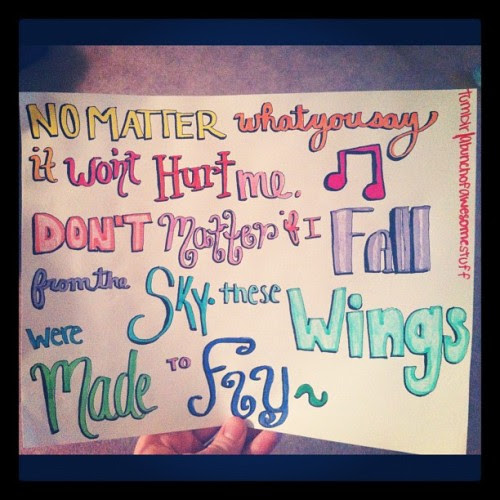 NO MATTER what you say
it won't Hurt me.
DON'T Matter if I Fall
from the SKY. these Wings
were
Made TO Fly ~
tumblr/abunchofawesomestuff